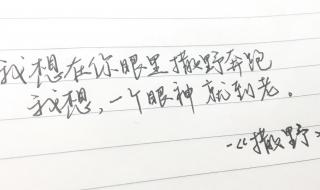 我想在你眼里撒野奔跑
我想，一个眼神就到老。
—《撒野》